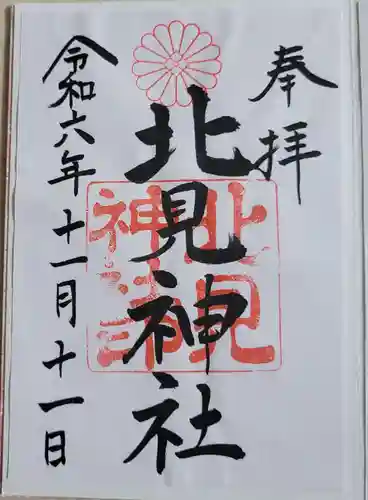 奉拝
北見神社
令和六年十一月十一日